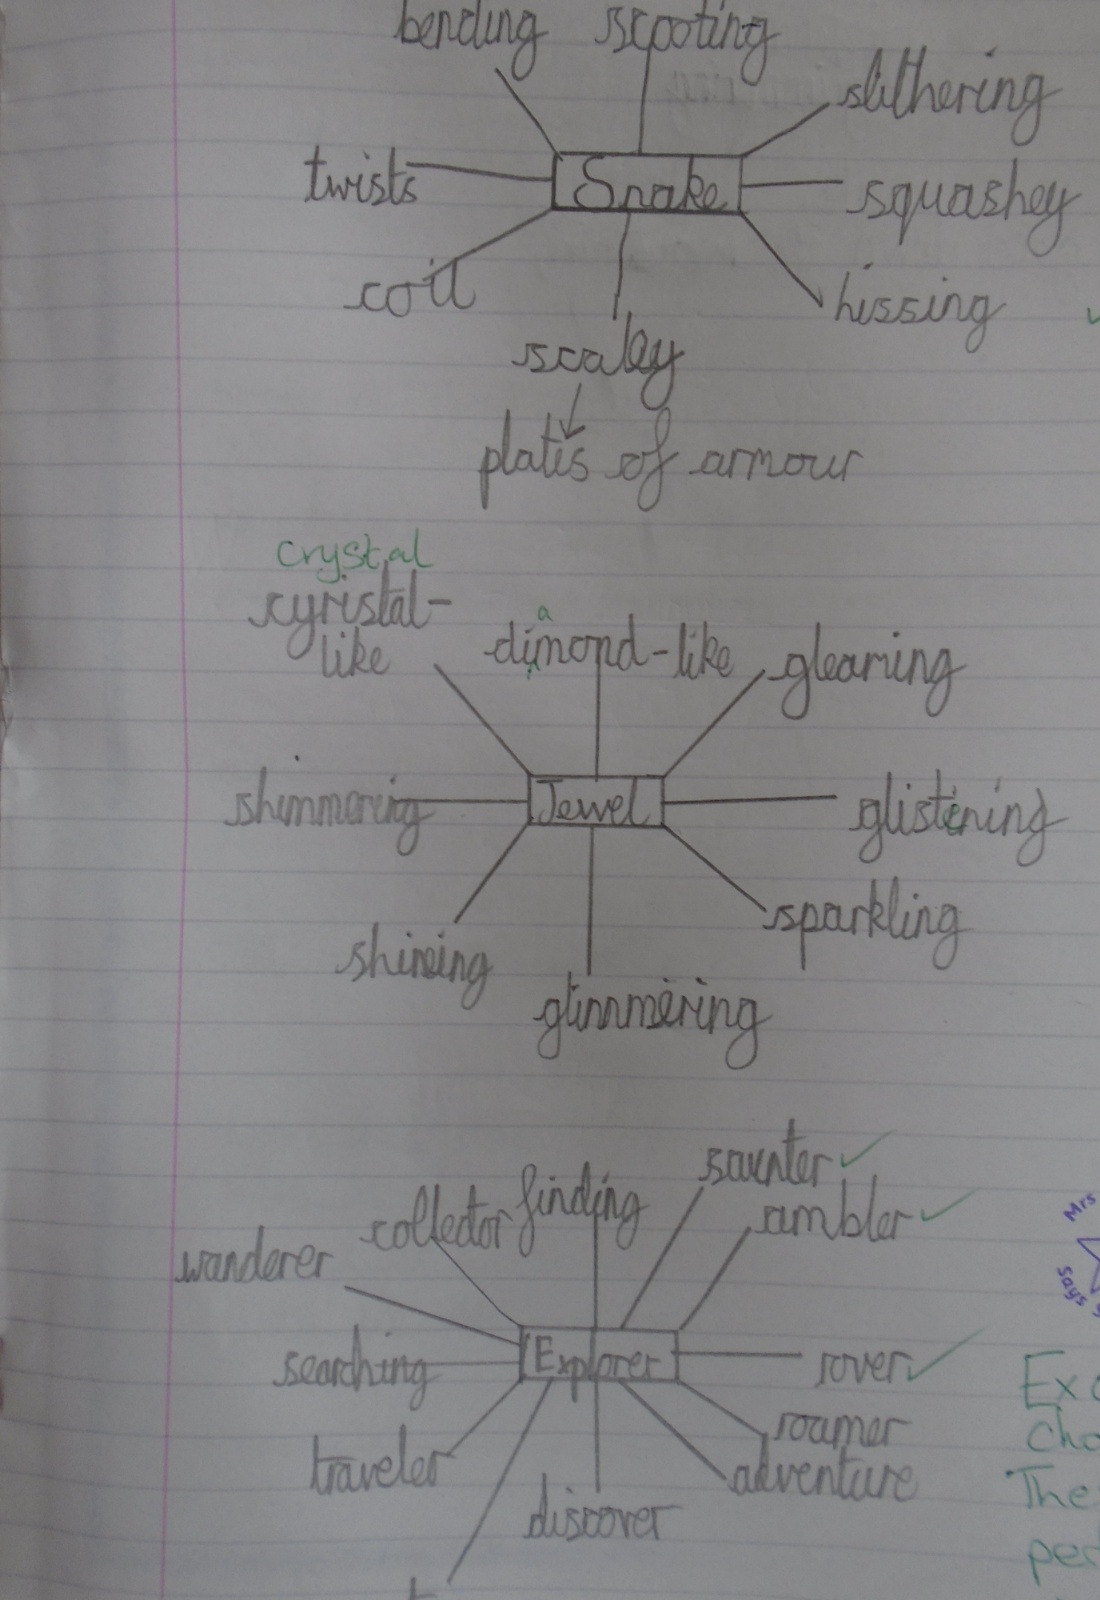 bending scooting
slithering
twists Snake squashey
coil hissing
scaley
plates of armour
crystal
cyristal-
like
a
dimond-like gleaming
shimmering Jewel glistening
sparkling
shining
glimmering
saunter
collector finding ambler
wanderer
Mrs
says
searching Explorer rover
roamer
traveler adventure
discover
The